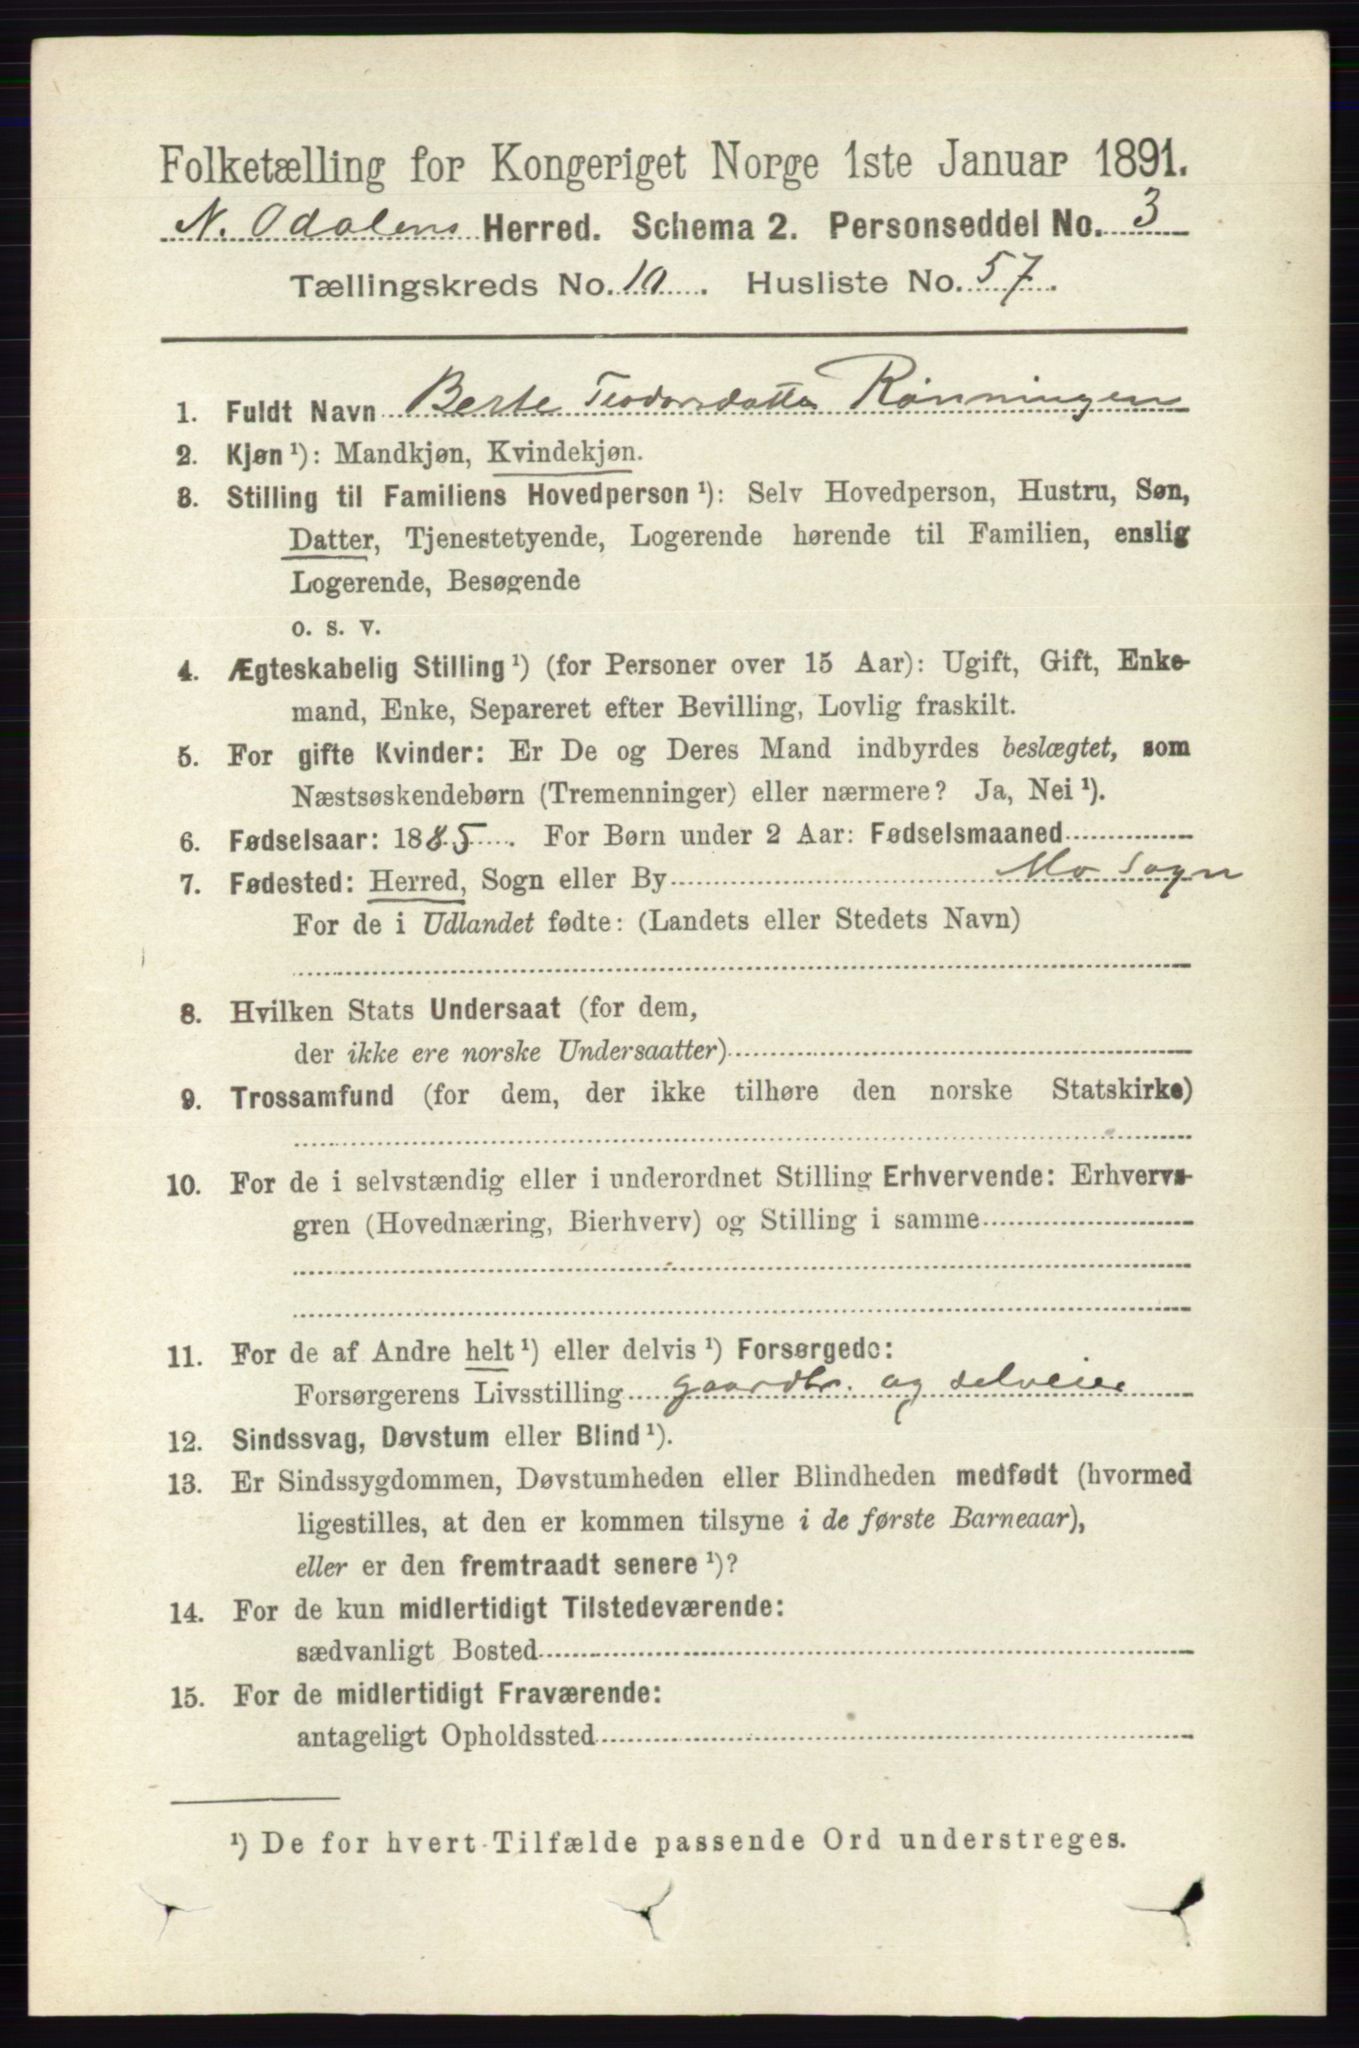 Folketælling for Kongeriget Norge 1ste Januar 1891.
N. Odalens Herred. Schema 2. Personseddel No. 3
Tællingskreds No. 10. Husliste No. 57.
1. Fuldt Navn Berte Teodorsdatter Rønningen
2. Kjøn ¹): Mandkjøn, Kvindekjøn.
3. Stilling til Familiens Hovedperson ¹): Selv Hovedperson, Hustru, Søn,
Datter, Tjenestetyende, Logerende hørende til Familien, enslig
Logerende, Besøgende
o. s. v.
4. Ægteskabelig Stilling ¹) (for Personer over 15 Aar): Ugift, Gift, Enke-
mand, Enke, Separeret efter Bevilling, Lovlig fraskilt.
5. For gifte Kvinder: Er De og Deres Mand indbyrdes beslægtet, som
Næstsøskendebørn (Tremenninger) eller nærmere? Ja, Nei ¹).
6. Fødselsaar: 1885. For Børn under 2 Aar: Fødselsmaaned
7. Fødested: Herred, Sogn eller By Mo Sogn
For de i Udlandet fødte: (Landets eller Stedets Navn)
8. Hvilken Stats Undersaat (for dem,
der ikke ere norske Undersaatter)
9. Trossamfund (for dem, der ikke tilhøre den norske Statskirke)
10. For de i selvstændig eller i underordnet Stilling Erhvervende: Erhvervs-
gren (Hovednæring, Bierhverv) og Stilling i samme
11. For de af Andre helt ¹) eller delvis ¹) Forsørgede:
Forsørgerens Livsstilling gaardbr. og selveier
12. Sindssvag, Døvstum eller Blind ¹).
13. Er Sindssygdommen, Døvstumheden eller Blindheden medfødt (hvormed
ligestilles, at den er kommen tilsyne i de første Barneaar),
eller er den fremtraadt senere ¹)?
14. For de kun midlertidigt Tilstedeværende:
sædvanligt Bosted
15. For de midlertidigt Fraværende:
antageligt Opholdssted
¹) De for hvert Tilfælde passende Ord understreges.